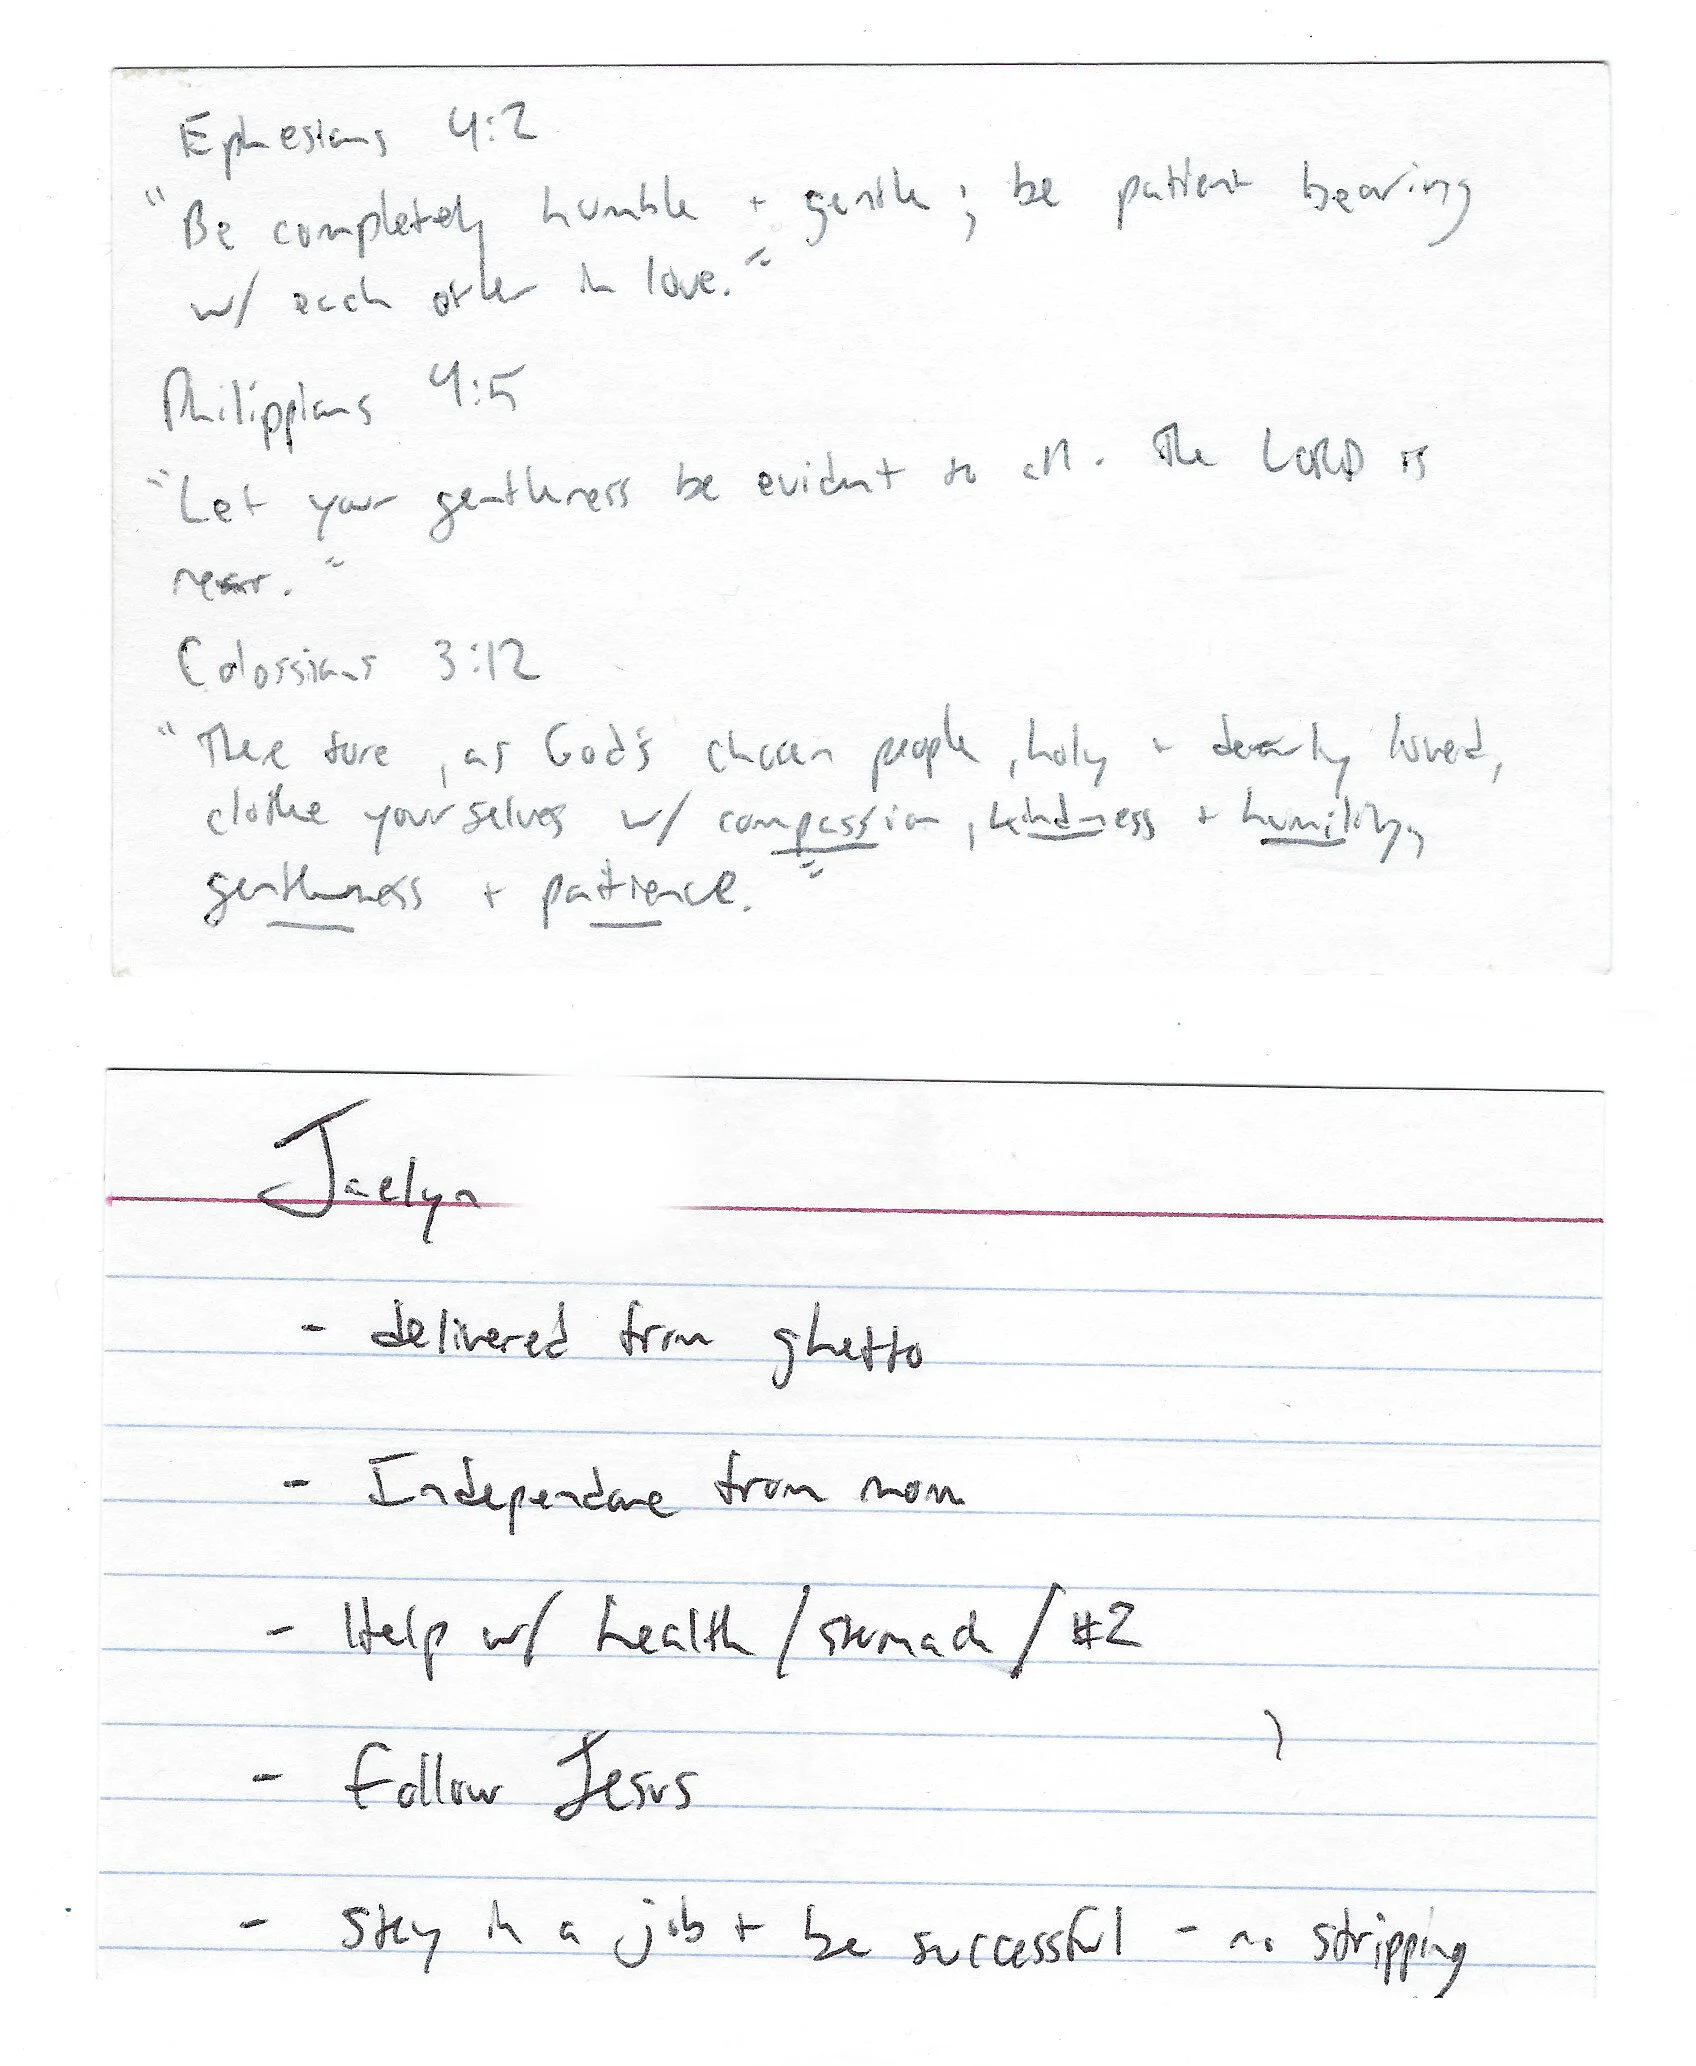 Ephesians 4:2
"Be completely humble + gentle; be patient bearing
w/ each other in love."
Philippians 4:5
"Let your gentleness be evident to all. The LORD is
near."
Colossians 3:12
"There fore, as God's chosen people, holy + dearly loved,
clothe yourselves w/ compassion, kindness + humility,
gentleness + patience."
Jaelyn
- delivered from ghetto
- Independance from mom
- Help w/ health/stomach/#2
- Follow Jesus
- Stay in a job + be successful - no stripping